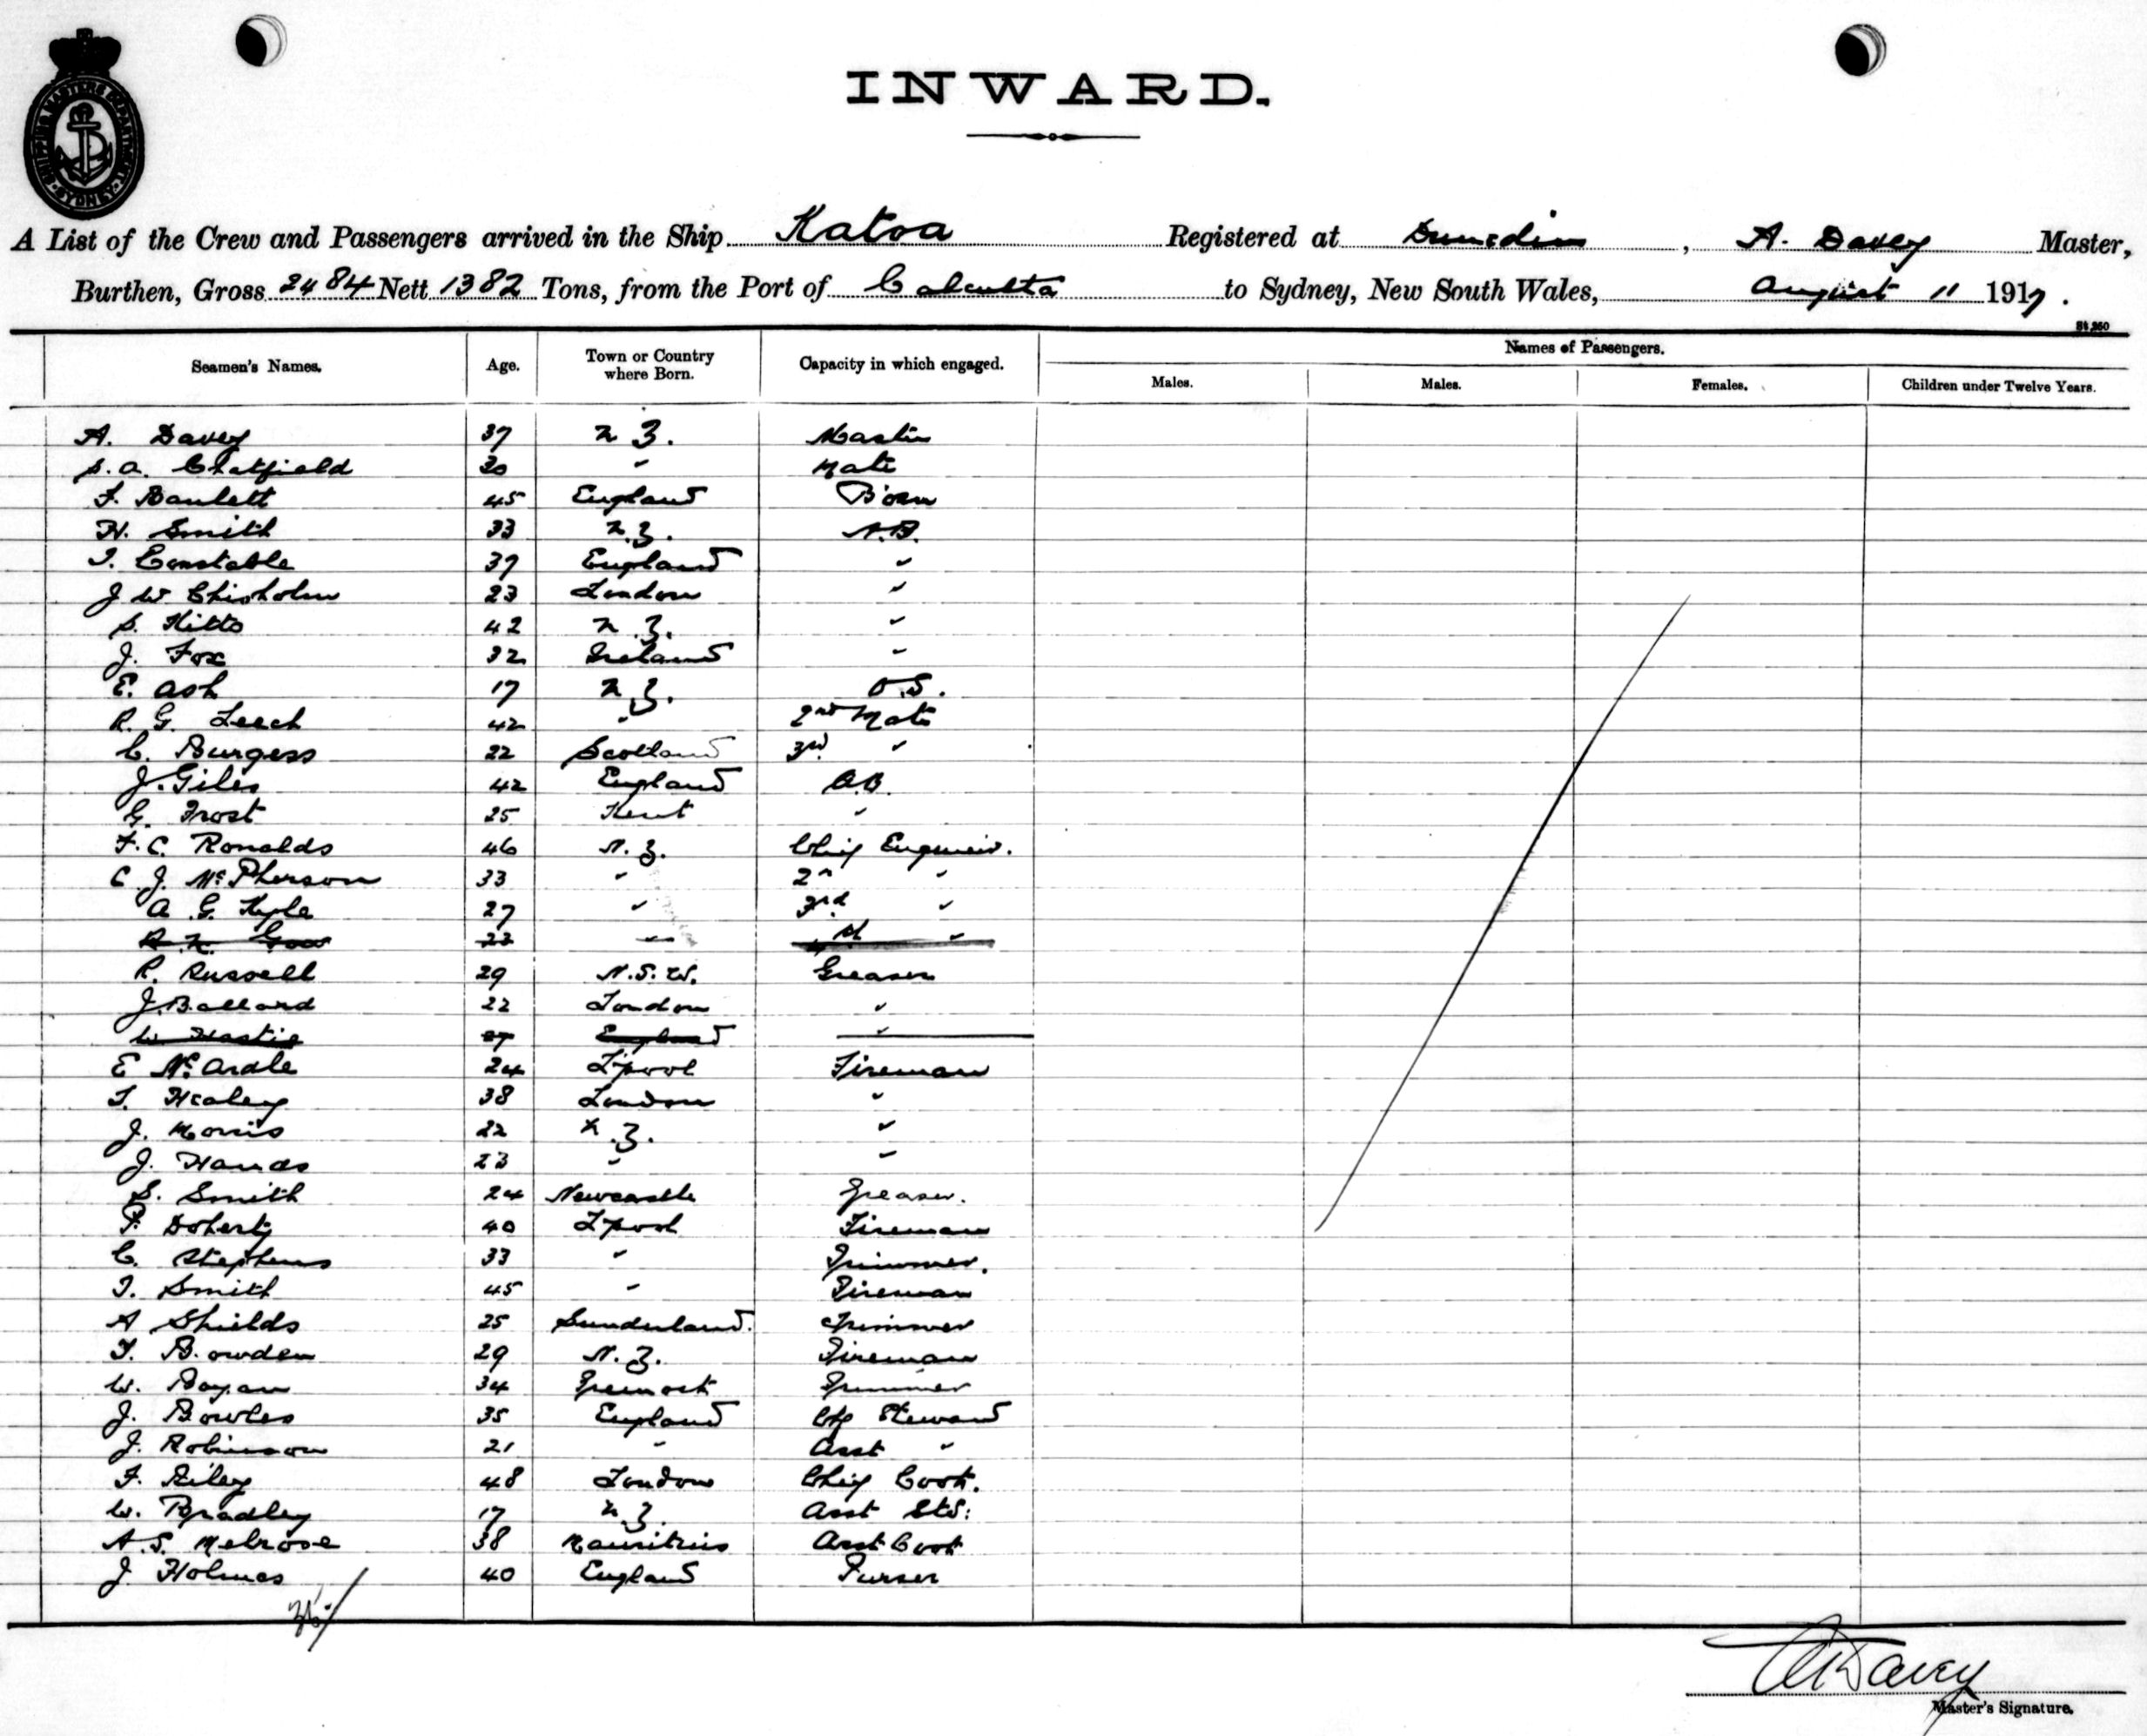 SHIPPING MASTERS DEPARTMENT SYDNEY
INWARD.
A List of the Crew and Passengers arrived in the Ship Katoa Registered at Dunedin, A. Davey Master,
Burthen, Gross 2484 Nett 1382 Tons, from the Port of Calcutta to Sydney, New South Wales, August 11 1917.
Seamen's Names. Age. Town or Country where Born. Capacity in which engaged. Names of Passengers.
Males. Males. Females. Children under Twelve Years.
A. Davey 37 N Z. Master
S. A. Chatfield 30 " Mate
F. Bartlett 45 England Bosn
H. Smith 33 N.Z. A.B.
T. Constable 37 England "
J W Chisholm 23 London "
S. Kitto 42 N.Z. "
J. Fox 32 Ireland "
E. Ash 17 N.Z. O.S.
R. G. Leech 42 " 2nd Mate
C. Burgess 22 Scotland 3rd "
J. Giles 42 England A.B.
G. Frost 25 Kent "
F. C. Ronalds 46 N.Z. Chief Engineer.
C. J. McPherson 33 " 2n "
A. G. Kyle 27 " 3rd "
Gow 22 " 4th "
R. Russell 29 N.S.W. Greaser
J. Ballard 22 London "
W Hastie 27 England "
E McArdle 24 L'pool Fireman
T. Healey 38 London "
J. Morris 22 N.Z. "
J. Hands 23 " "
S. Smith 24 Newcastle Greaser.
P. Doherty 40 L'pool Fireman
C. Stephens 33 " Trimmer.
T. Smith 45 " Fireman
A Shields 25 Sunderland. Trimmer
T. Bowden 29 N.Z. Fireman
W. 34 Trimmer
J. Bowles 35 England Chf Steward
J. Robinson 21 " Asst "
F. Riley 48 London Chief Cook.
W. Bradley 17 N.Z. Asst Std:
A. S. Melrose 38 Mauritius Asst Cook
J. Holmes 40 England Purser
A Davey
Master's Signature.